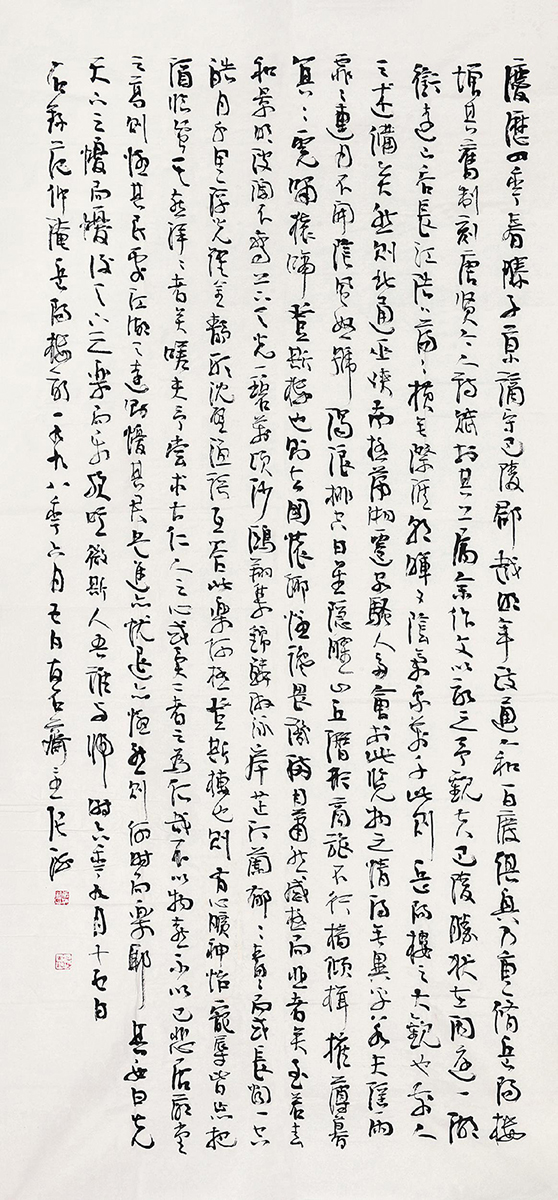 慶歷四年春滕子京謫守巴陵郡越明年政通人和百廢俱興乃重修岳陽樓
增其舊制刻唐賢今人詩賦於其上屬余作文以記之予觀夫巴陵勝狀在洞庭一湖
銜遠山吞長江浩浩蕩蕩橫無際涯朝暉夕陰氣象萬千此則岳陽樓之大觀也前人
之述備矣然則北通巫峽南極瀟湘遷客騷人多會於此覽物之情得無異乎若夫霪雨
霏霏連月不開陰風怒號濁浪排空日星隱曜山岳潛形商旅不行檣傾楫摧薄暮
冥冥虎嘯猿啼登斯樓也則有去國懷鄉憂讒畏譏滿目蕭然感極而悲者矣至若春
和景明波瀾不驚上下天光一碧萬頃沙鷗翔集錦鱗游泳岸芷汀蘭郁郁青青而或長煙一空
皓月千里浮光躍金靜影沈璧漁歌互答此樂何極登斯樓也則有心曠神怡寵辱皆忘把
酒臨風其喜洋洋者矣嗟夫予嘗求古仁人之心或異二者之為何哉不以物喜不以己悲居廟堂
之高則憂其民處江湖之遠則憂其君是進亦憂退亦憂然則何時而樂耶其必曰先
天下之憂而憂後天下之樂而樂歟噫微斯人吾誰與歸時六年九月十五日
范仲淹岳陽樓記一九九八年六月五日